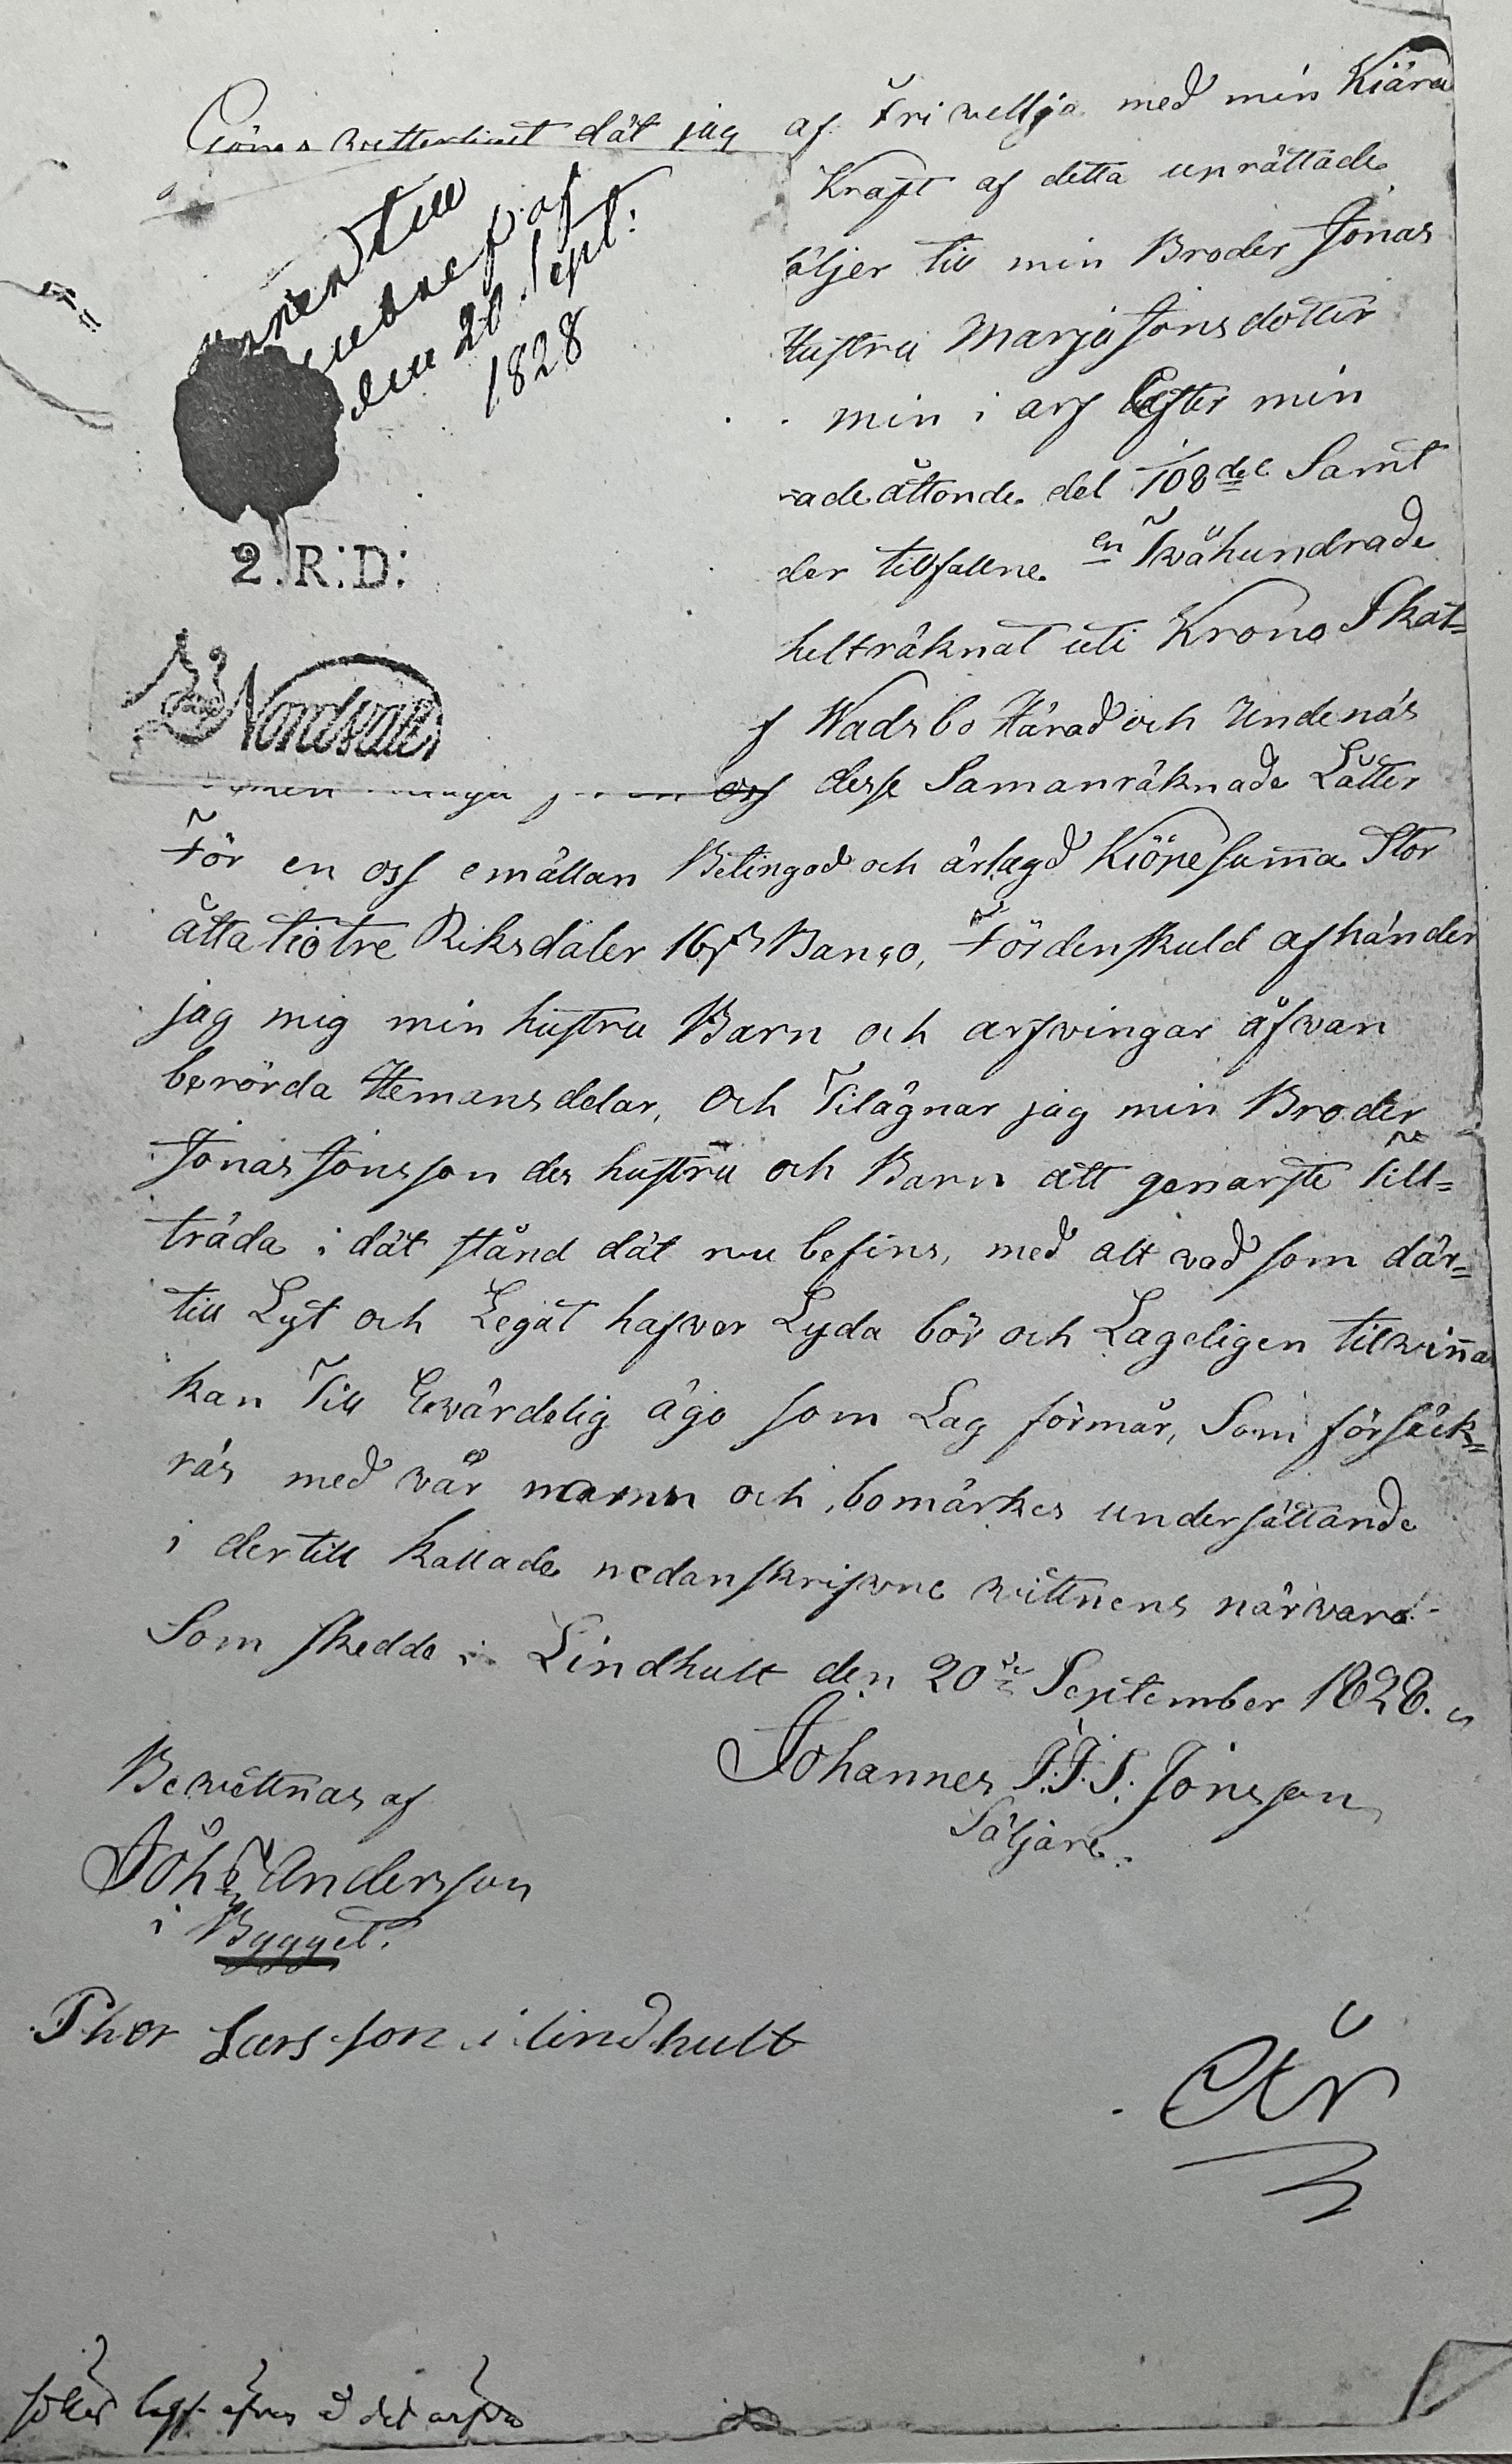 Giöres witterligit dät jag af Fri wellja med min Kiära
Kraft af detta unrättade
äljer till min Broder Jonas
Hustru Marja Jonsdotter
min i arf Efter min
rade åttonde del 108del Samt
der tillfallne en Twåhundrade
helträknat uti Krono Skat=
f Wadsbo Härad och Undenäs
oss desse Samanräknade Låtter
För en oss emällan Betingad och ärlagd Kiöpesumma Stor
åttatiotre Riksdaler 16 ß Banco, Fördenskuld afhänder
jag mig min hustru Barn och arfwingar åfwan
berörda Hemansdelar, Och Tilägnar jag min Broder
Jonas Jonsson des hustru och Barn att genarste Till=
träda i dät stånd dät nu befins, med alt vad som där=
till Lyt och Legat hafwer Lyda bör och Lageligen tilwinna
kan Till Ewärdelig ägo som Lag förmår, Som försäck=
räs med wår namn och bomärkes undersättande
i dertill kallade nedanskrifwne wittnens närwaro
Som skedde i Lindhult den 20de September 1828.
Johannes J.J.S. Jonsson
Säljare.
Bewittnas af
Joh Andersson
i Bygget.
Pher Larsson i lindhult
till
af
den 20 Sept:
1828
2.R:D:
År